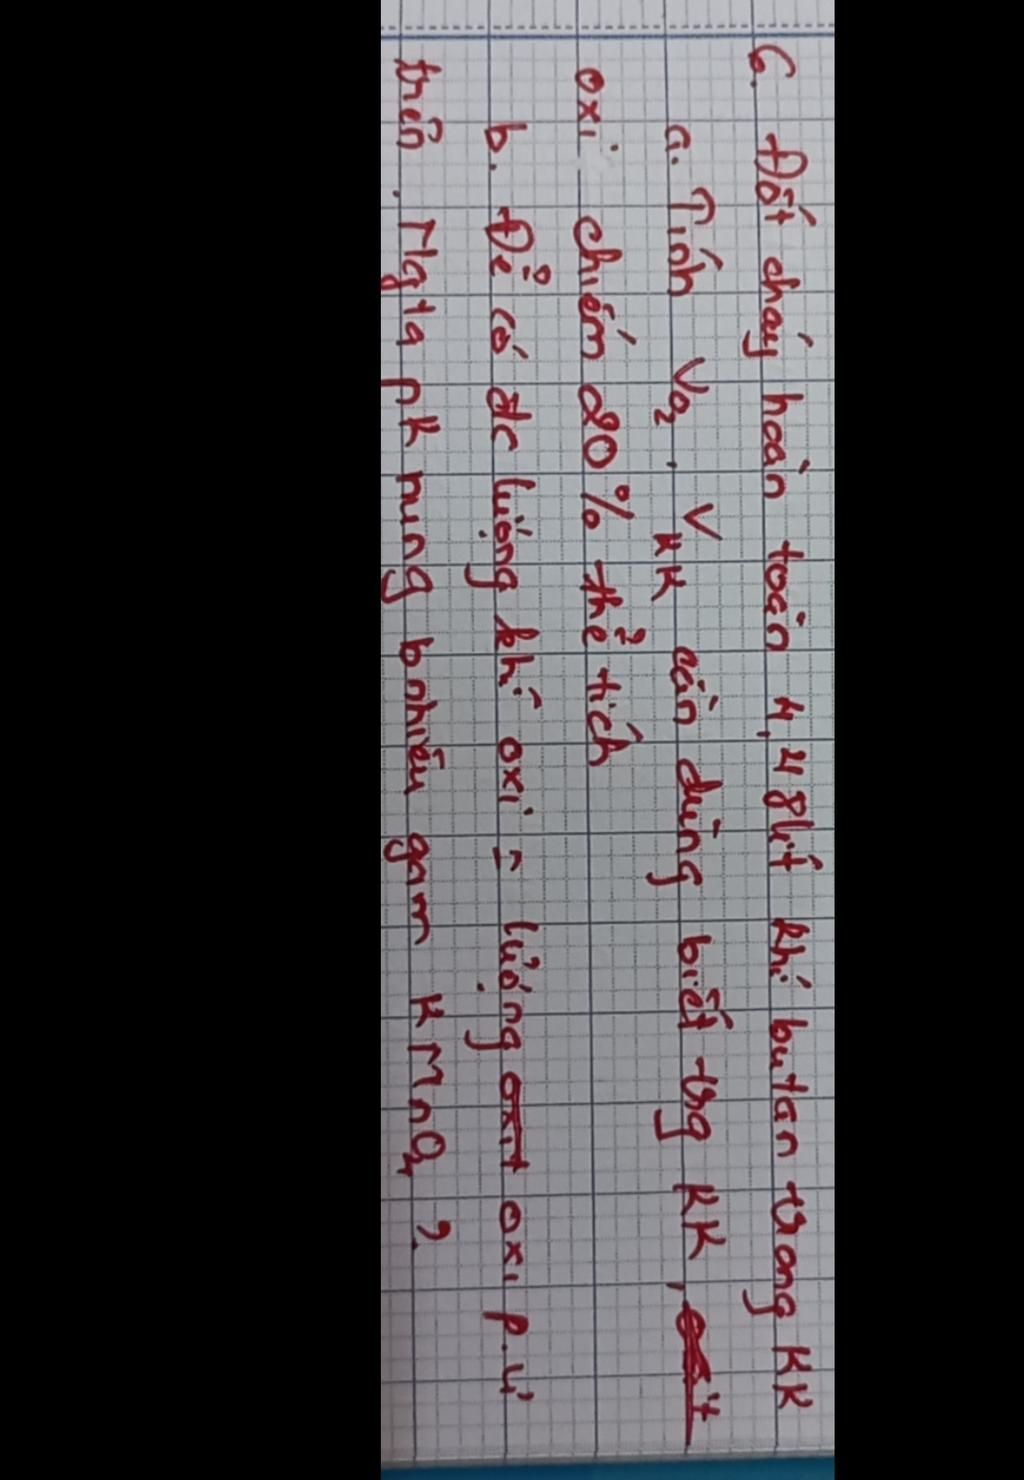 6. Đốt cháy hoàn toàn 4,48 lít khí butan trong KK
a. Tính VO2, VKK cần dùng biết trg KK,
oxi chiếm 20% thể tích
b. Để có đc lượng khí oxi = lượng oxit oxi p.ứ
trên. Ng ta pk nung bnhiêu gam KMnO4?